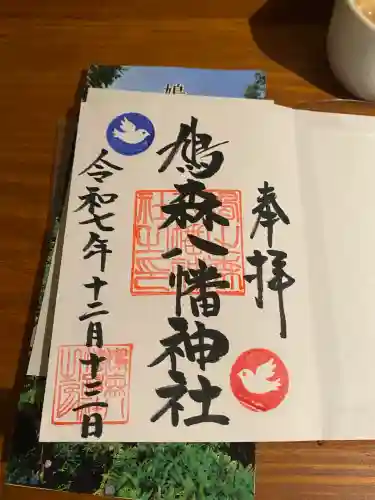 奉拝
鳩森八幡神社
令和七年十二月十三日
鳩